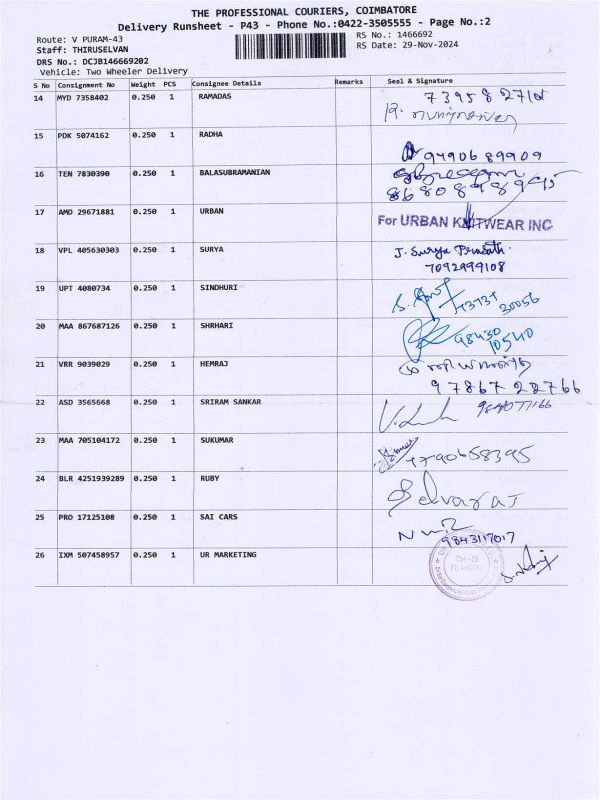 THE PROFESSIONAL COURIERS, COIMBATORE
Delivery Runsheet - P43 - Phone No.:0422-3505555 - Page No.:2
Route: V PURAM-43 RS No.: 1466692
Staff: THIRUSELVAN RS Date: 29-Nov-2024
DRS No.: DCJB146669202
Vehicle: Two Wheeler Delivery
S No Consignment No Weight PCS Consignee Details Remarks Seal & Signature
14 MYD 7358402 0.250 1 RAMADAS
15 PDK 5074162 0.250 1 RADHA
9490689909
16 TEN 7830390 0.250 1 BALASUBRAMANIAN
17 AMD 29671881 0.250 1 URBAN For URBAN KNITWEAR INC
18 VPL 405630303 0.250 1 SURYA J. Surya Prasath.
7092999108
19 UPT 4080734 0.250 1 SINDHURI
73737 30056
20 MAA 867687126 0.250 1 SHRHARI 98430
10540
21 VRR 9039029 0.250 1 HEMRAJ
97867 28766
22 ASD 3565668 0.250 1 SRIRAM SANKAR
23 MAA 705104172 0.250 1 SUKUMAR
7790658395
24 BLR 4251939289 0.250 1 RUBY Selvaraj
25 PRO 17125108 0.250 1 SAI CARS
9843117017
26 IXM 507458957 0.250 1 UR MARKETING